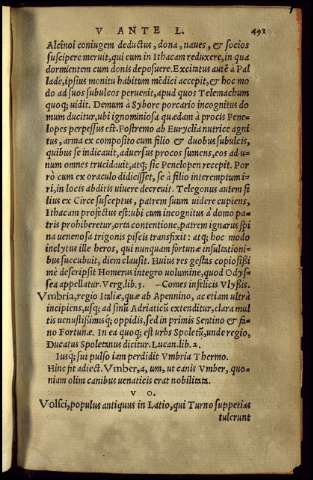 V ANTE L. 491
Alcinoi coniugem deductus, dona, naues, & socios
suscipere meruit, qui cum in Ithacam reduxere, in qua
dormientem cum donis deposuere. Excitus autē à Pal
lade, ipsius monitu habitum mēdici accepit, & hoc mo
do ad suos subulcos peruenit, apud quos Telemachum
quoq; uidit. Demum à Sybote porcario incognitus do
mum ducitur, ubi ignominiosa quædam à procis Pene
lopes perpessus est. Postremo ab Euryclia nutrice agni
tus, arma ex composito cum filio & duobus subulcis,
quibus se indicauit, aduersus procos sumens, eos ad u
num omnes trucidauit, atq; sic Penelopen recepit. Por
rò cum ex oraculo didicisset, se à filio interemptum i-
ri, in locis abditis uiuere decreuit. Telegonus autem fi
lius ex Circe susceptus, patrem suum uidere cupiens,
Ithacam profectus est: ubi cum incognitus à domo pa-
tris prohiberetur, orta contentione, patrem ignarus spi
na uenenosa trigonis piscis transfixit: atq; hoc modo
inclytus ille heros, qui nunquam fortunæ insultationi-
bus succubuit, diem clausit. Huius res gestas copiosissi
mè descripsit Homerus integro uolumine, quod Odys-
sea appellatur. Verg. lib. 3. –Comes infelicis Vlyssis.
Vmbria, regio Italiæ, quæ ab Apennino, ac etiam ultrà
incipiens, usq; ad sinū Adriaticū extenditur, clara mul
tis uenustissimisq; oppidis, sed in primis Sentino & fa-
no Fortunæ. In ea quoq; est urbs Spoletū, unde regio,
Ducatus Spoletanus dicitur. Lucan. lib. 2.
Iusq; sui pulso iam perdidit Vmbria Thermo.
Hinc fit adiect. Vmber, a, um, ut canis Vmber, quo-
niam olim canibus uenaticis erat nobilitata.
V O.
Volsci, populus antiquus in Latio, qui Turno suppetias
tulerunt